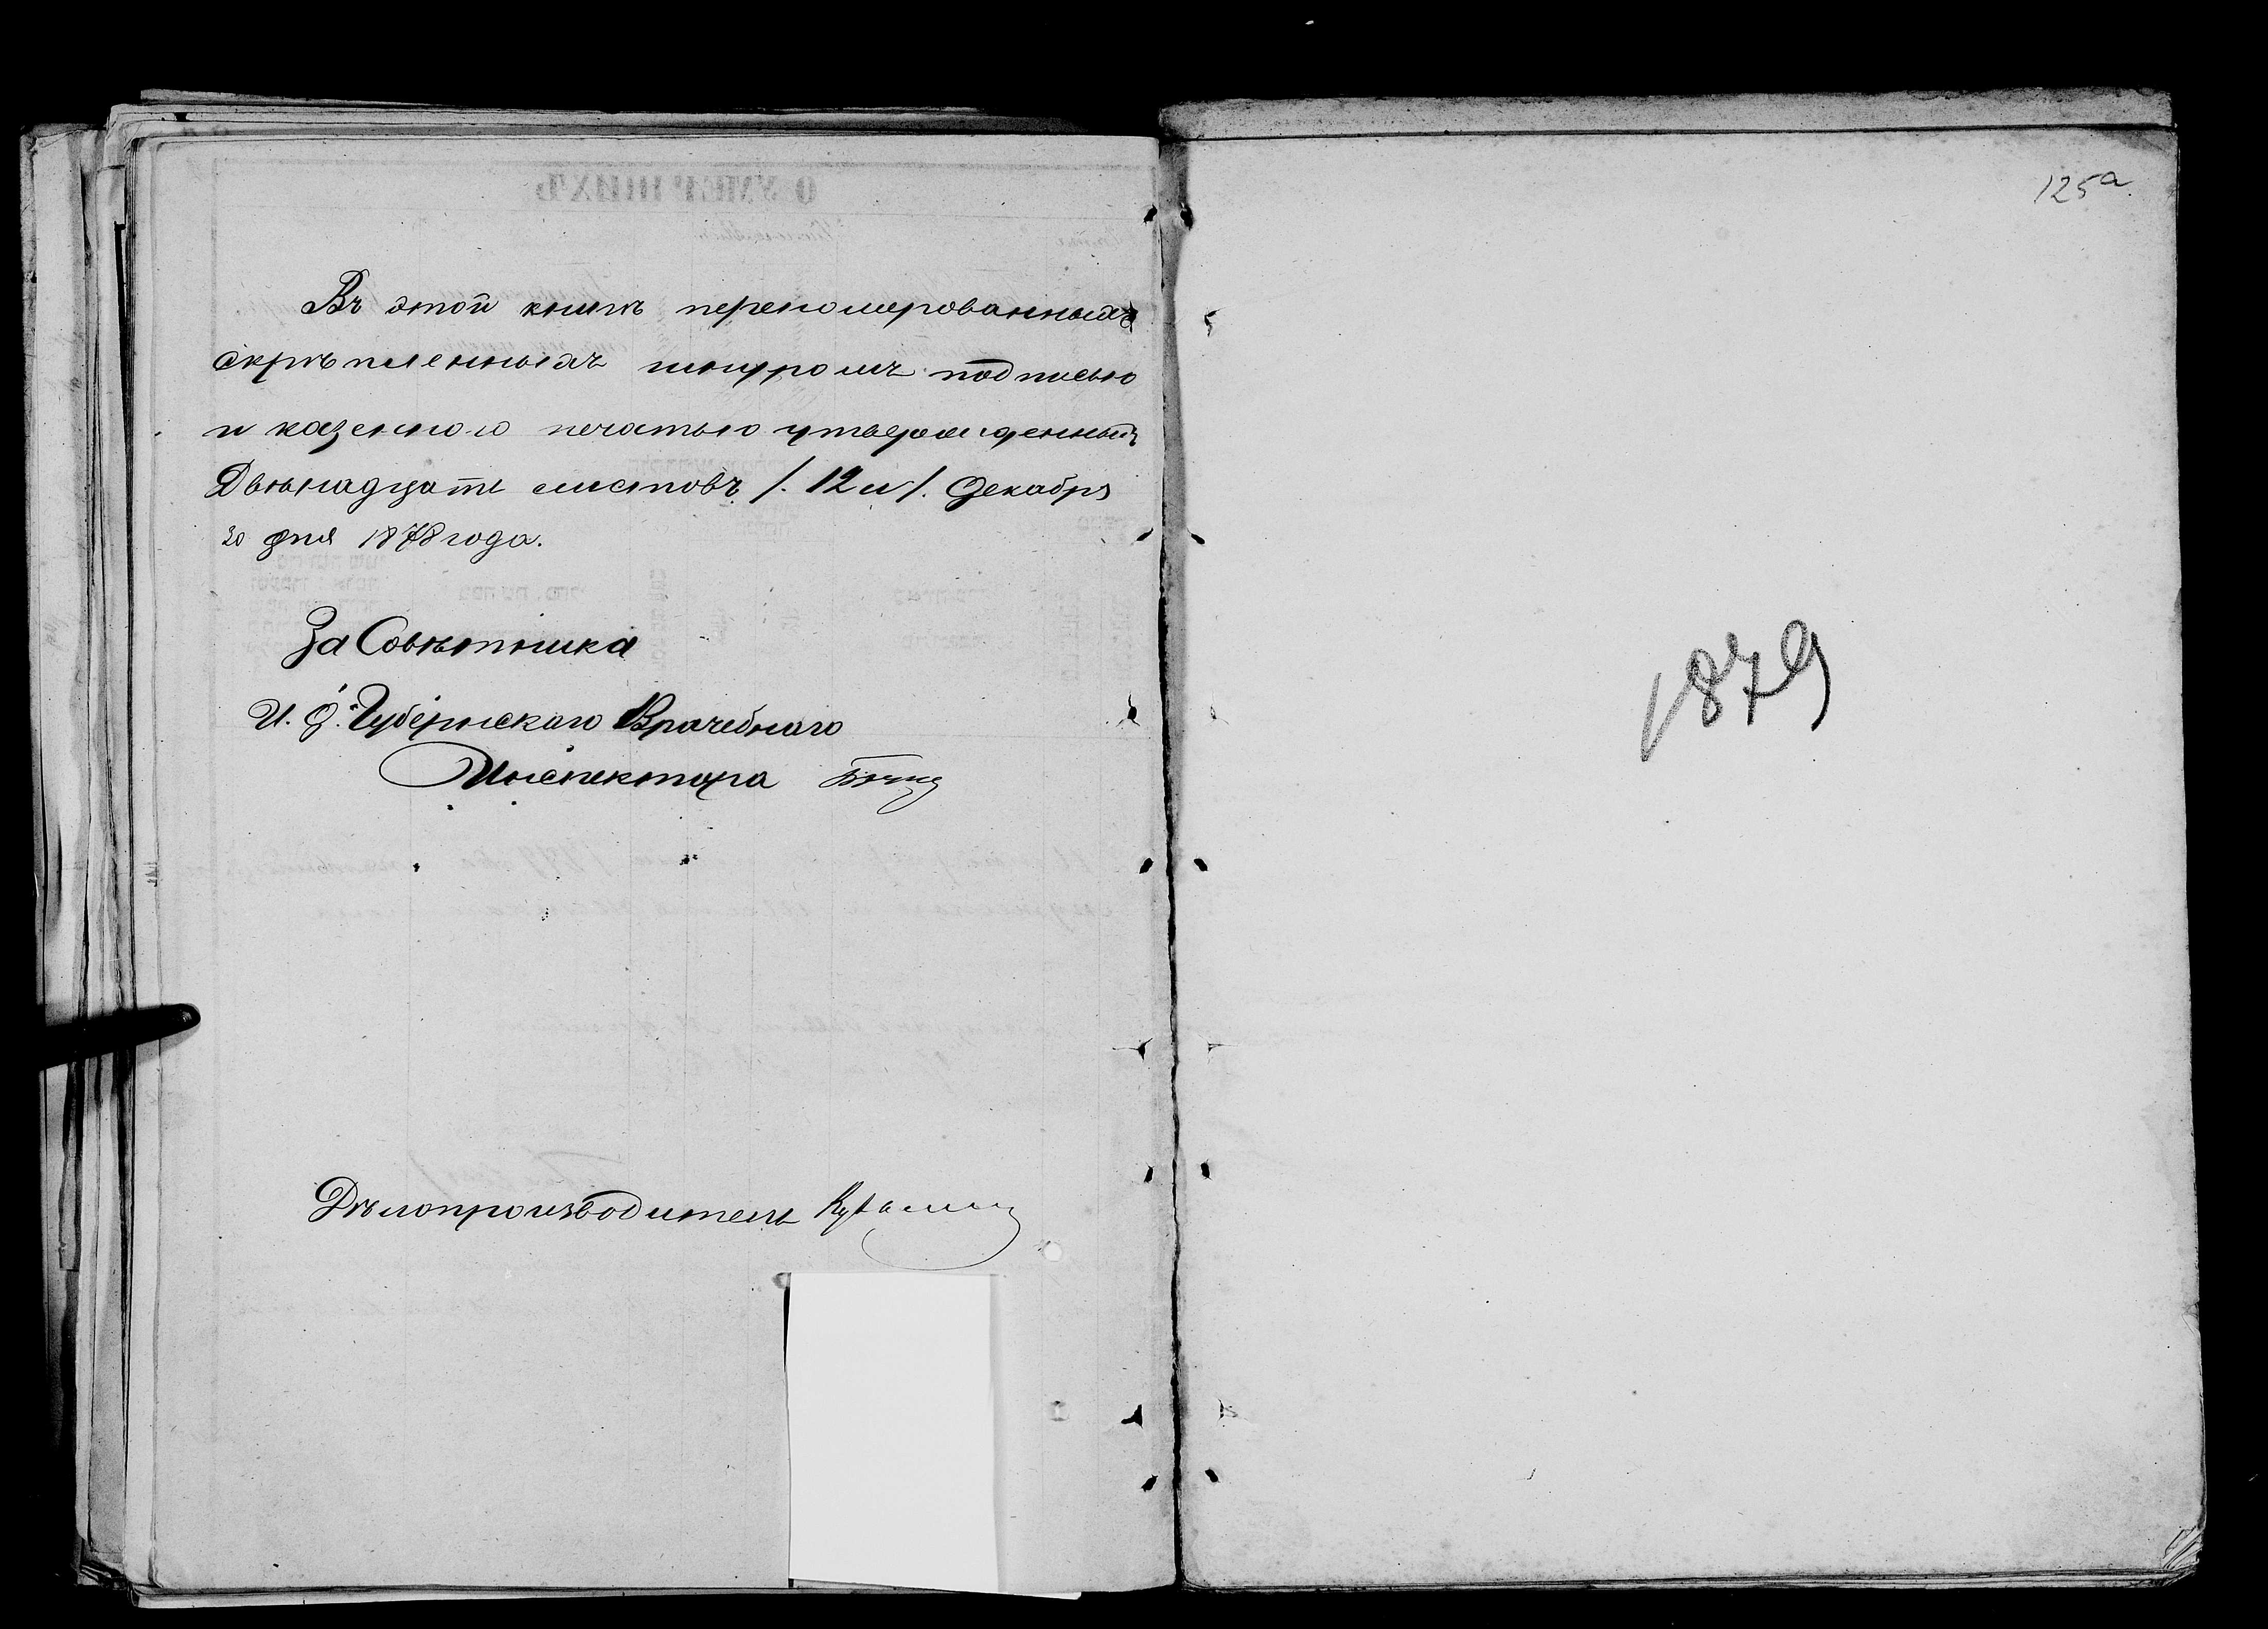 Въ этой книгѣ перенумерованныхъ
скрѣпленныхъ шнуромъ подписью
и казенною печатью утвержденныхъ
Двѣнадцать листовъ /. 12 л /. Декабря
30 дня 1878 года.
За Совѣтника
И. д. Губернскаго Врачебнаго
Инспектора
Дѣлопроизводитель
125а
1879